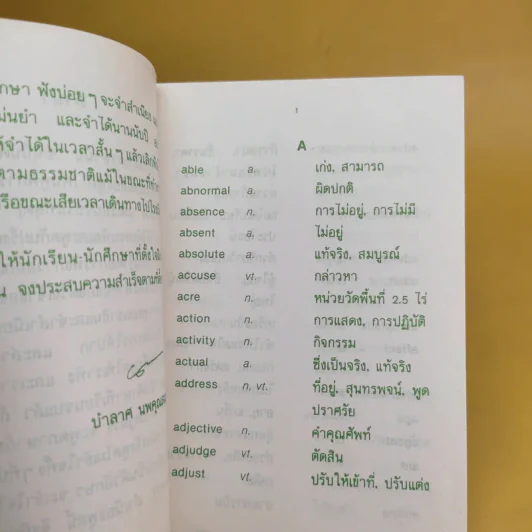 ฟังบ่อยๆ จะจำสำเนียง
และจำได้นานนับปี
จำได้ในเวลาสั้นๆ แล้วเลิก
ตามธรรมชาติแม้ในขณะที่
หรือขณะเสียเวลาเดินทางไป
ให้นักเรียน-นักศึกษาที่ตั้งใจ
จงประสบความสำเร็จตามที่
บำลาศ
1
A
able a. เก่ง, สามารถ
abnormal a. ผิดปกติ
absence n. การไม่อยู่, การไม่มี
absent a. ไม่อยู่
absolute a. แท้จริง, สมบูรณ์
accuse vt. กล่าวหา
acre n. หน่วยวัดพื้นที่ 2.5 ไร่
action n. การแสดง, การปฏิบัติ
activity n. กิจกรรม
actual a. ซึ่งเป็นจริง, แท้จริง
address n, vt. ที่อยู่, สุนทรพจน์, พูด
ปราศรัย
adjective n. คำคุณศัพท์
adjudge vt. ตัดสิน
adjust vt. ปรับให้เข้าที่, ปรับแต่ง